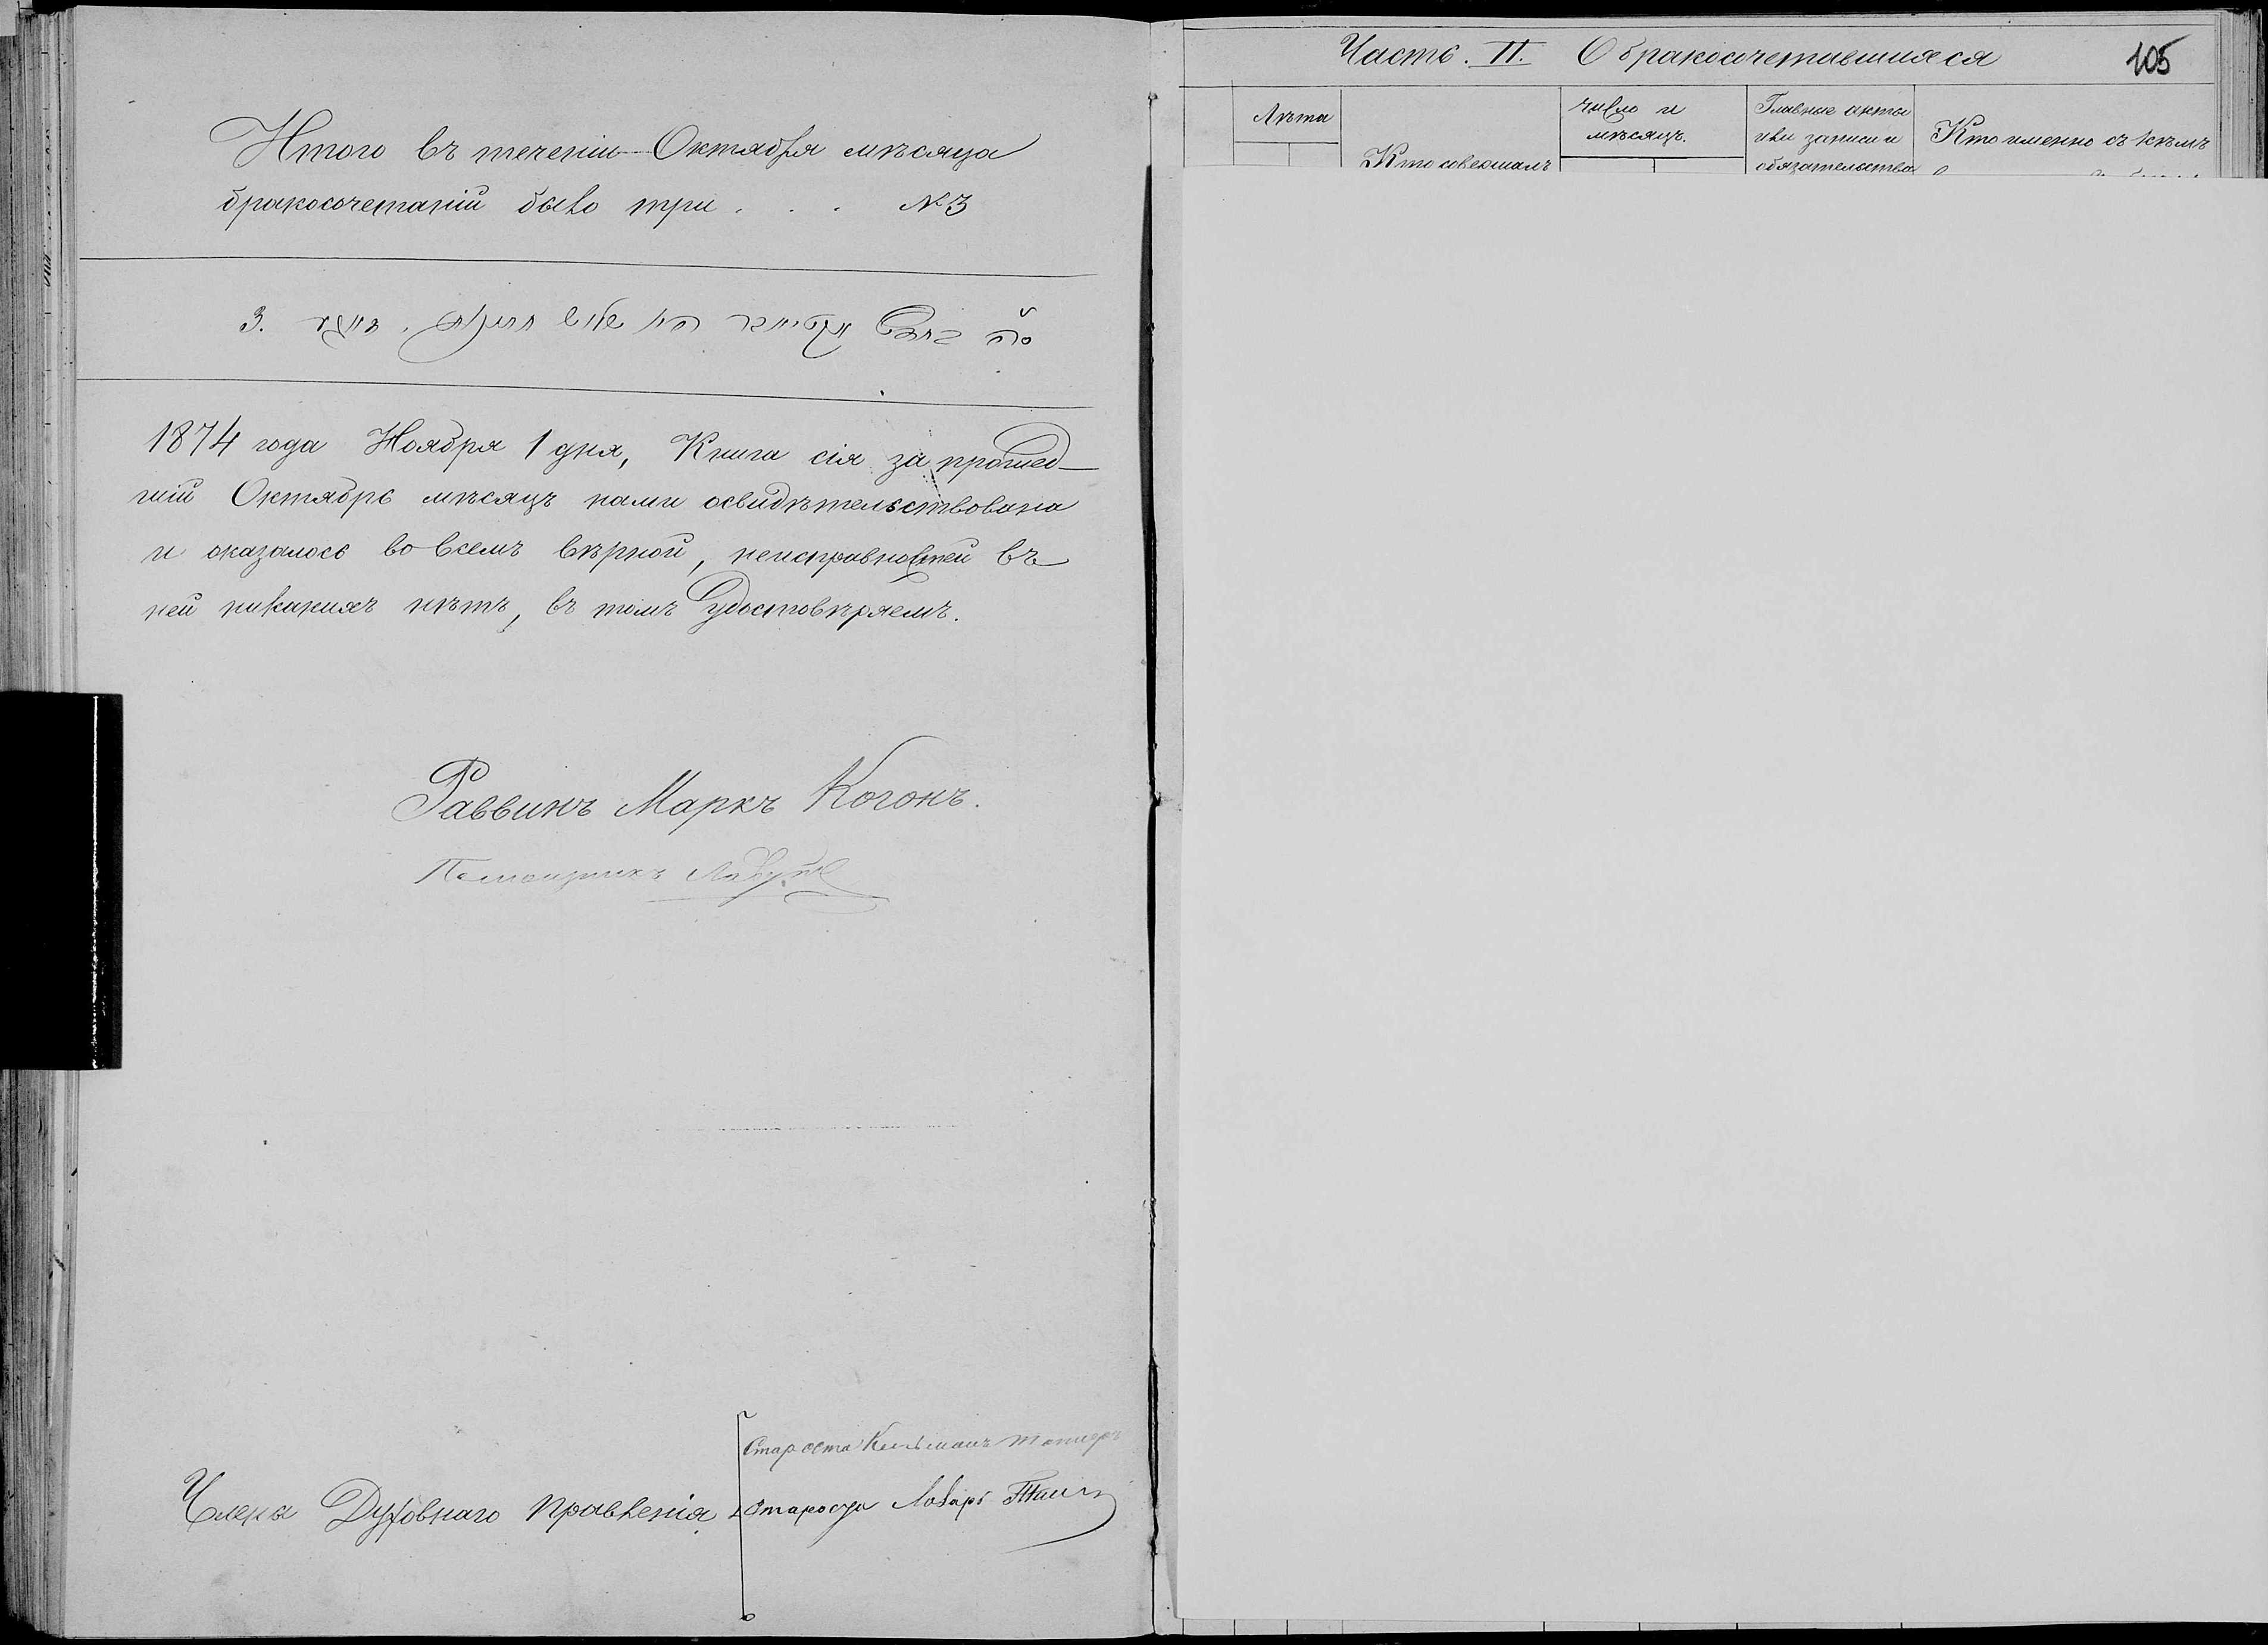 Итого въ теченіи Октября мѣсяца
бракосочетаній было три . . . № 3
3.
1874 года Ноября 1 дня, Книга сія за прошед-
шій Октябрь мѣсяцъ нами освидѣтельствована
и оказалось во всемъ вѣрной, неисправностей въ
ней никакихъ нѣтъ, въ томъ удостовѣряемъ.
Раввинъ Маркъ Когонъ.
Помощникъ
Староста Кельманъ
Члены Духовнаго Правленія
Староста Лазарь
Часть. II. О бракосочетавшихся
105
Лѣта
Кто совершалъ
число и
мѣсяцъ.
Главные акты
или записи и
обязательства
Кто именно съ кѣмъ